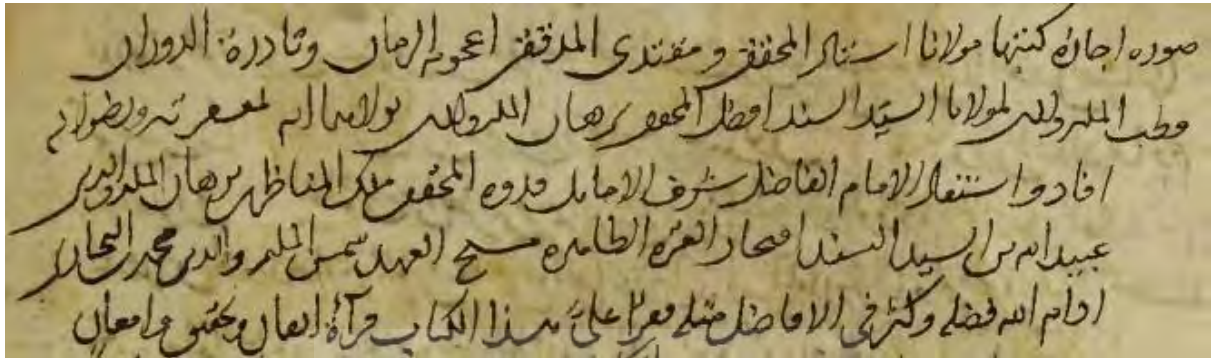 صوره اجازه كتبها مولانا استاد المحققين و مقتدى المدققين اعجوبة الزمان ونادرة الدوران
قطب المله والدين لمولانا السيد السند افضل المحققين برهان المله والدين تولاهما الله بمغفرته
افاد واستفاد الامام الفاضل شرف الاماثل قدوه المحققين ملك المناظرين برهان المله والدين
عبيد الله بن السيد السند افتخار العتره الطاهره مسيح العهد شمس المله والدين محمد البخارى
ادام الله فضله وكثر فى الافاضل مثله فقرا على هذا الكتاب قرآة اتقان وتحقيق وامعان